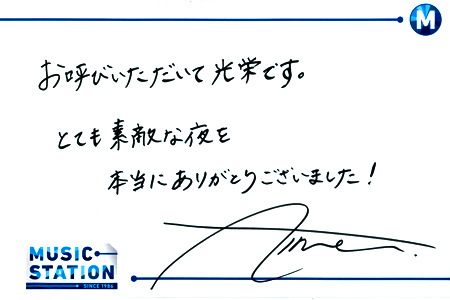 M
お呼びいただいて光栄です。
とても素敵な夜を
本当にありがとうございました!
Aimer.
MUSIC
STATION
SINCE 1986